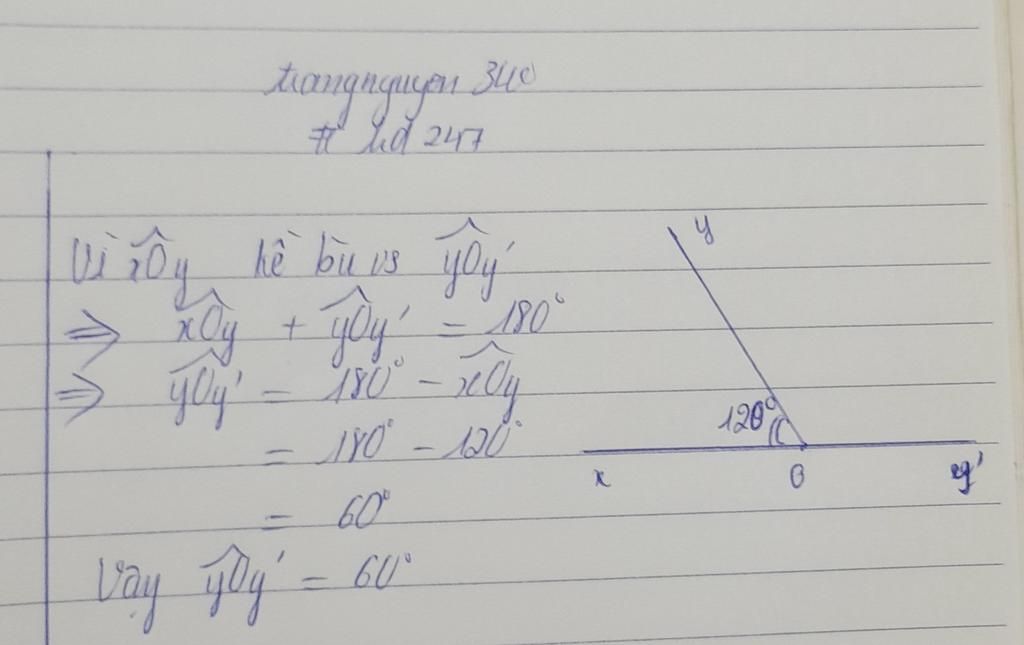 trangnguyen 340
# hd 247
Vì xOy kề bù vs yOy'
⇒ xOy + yOy' = 180°
⇒ yOy' = 180° - xOy
= 180° - 120°
= 60°
Vậy yOy' = 60°
y
120°
x O y'